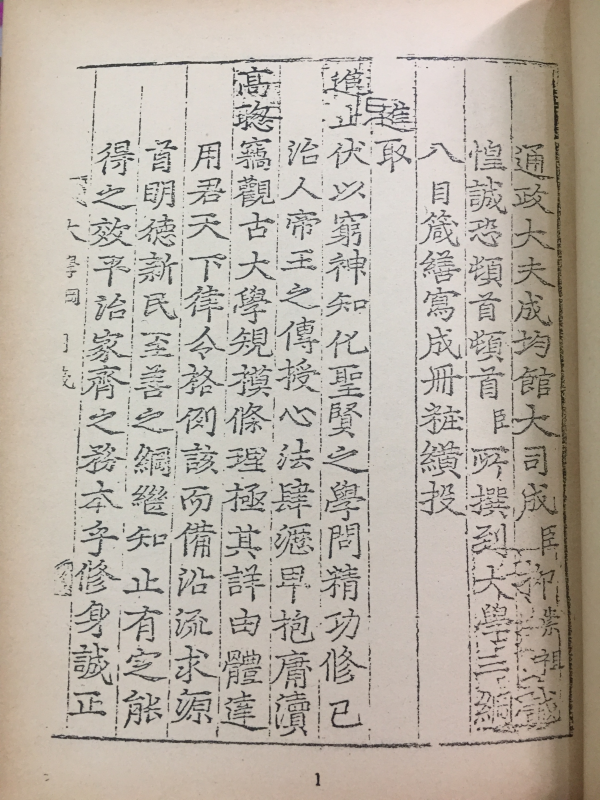 通政大夫成均館大司成臣柳崇祖誠
惶誠恐頓首頓首臣所撰到大學三綱
八目箴繕寫成冊粧投
進取
進止伏以窮神知化聖賢之學問精功修己
治人帝王之傳授心法肆瀝卑抱庸瀆
高聰竊觀古大學規模條理極其詳由體達
用君天下律令格例該而備沿流求源
首明德新民至善之綱繼知止有定能
得之效平治家齊之務本乎修身誠正
1